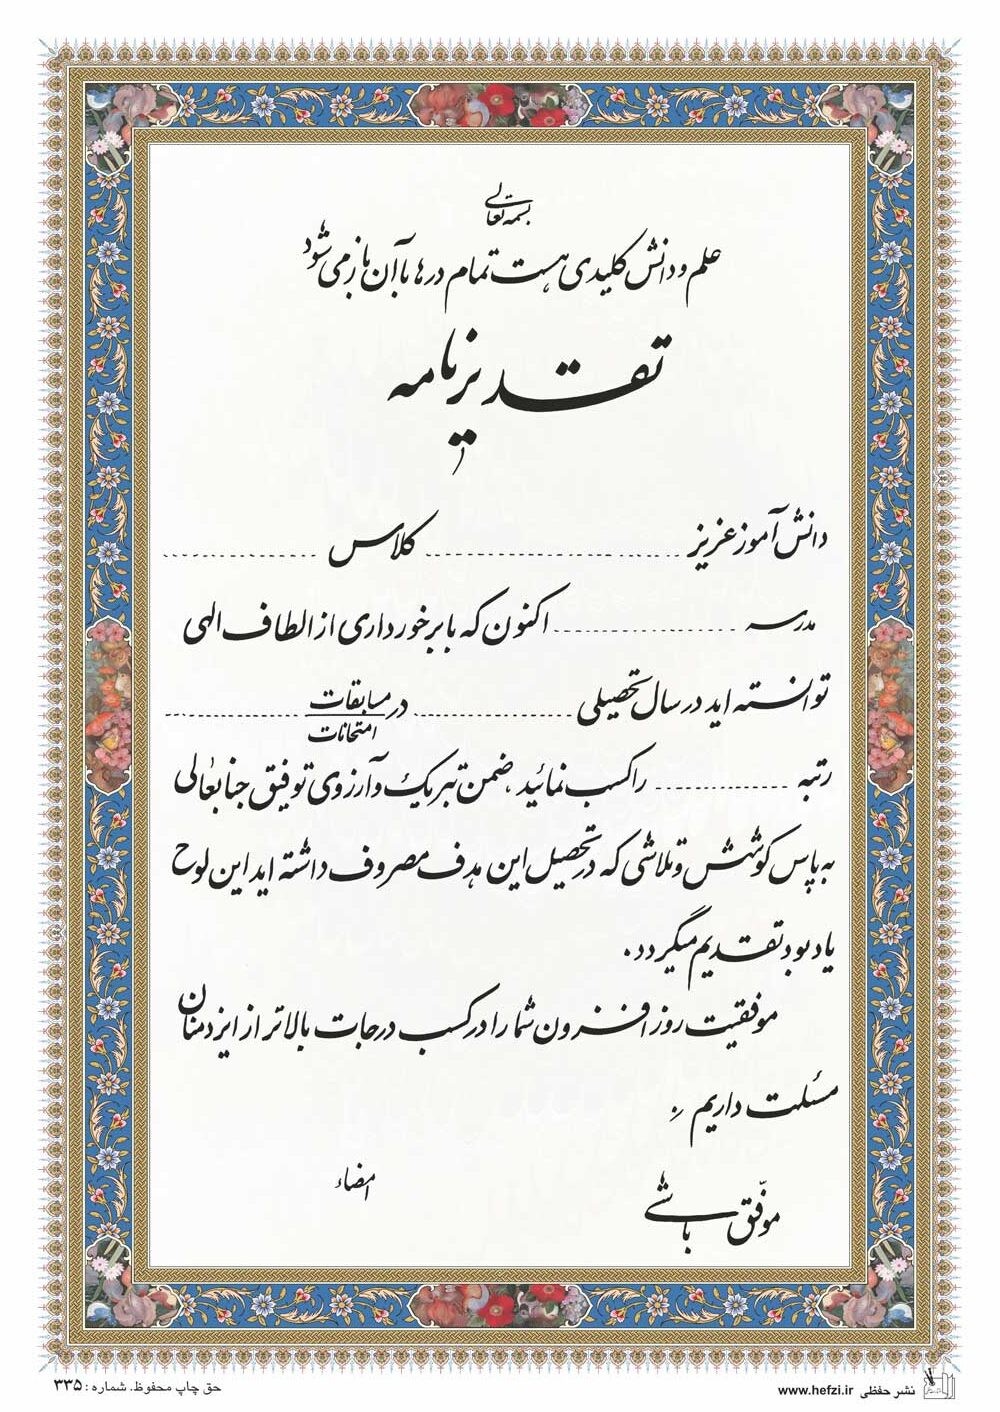 بسمه تعالی
علم و دانش کلیدی هست تمام درها با آن باز می شود
تقدیرنامه
دانش آموز عزیز .......................... کلاس ................
مدرسه .................... اکنون که با برخورداری از الطاف الهی
توانسته اید در سال تحصیلی ................ در مسابقات ................
امتحانات
رتبه .............. را کسب نمائید، ضمن تبریک و آرزوی توفیق جنابعالی
به پاس کوشش و تلاشی که در تحصیل این هدف مصروف داشته اید این لوح
یادبود تقدیم میگردد.
موفقیت روز افزون شما را در کسب درجات بالاتر از ایزد منان
مسئلت داریم.
امضاء
موفّق باشی
نشر حفظی www.hefzi.ir
حق چاپ محفوظ. شماره: ۳۳۵